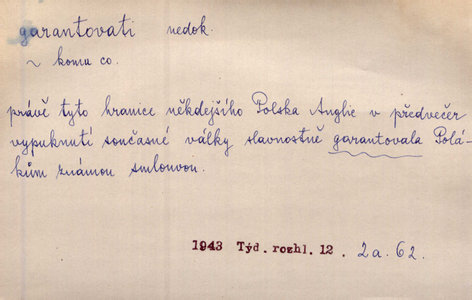 garantovati nedok.
~ komu co.
právě tyto hranice někdejšího Polska Anglie v předvečer
vypuknutí současné války slavnostně garantovala Polá-
kům známou smlouvou.
1943 Týd. rozhl. 12. 2a. 62.